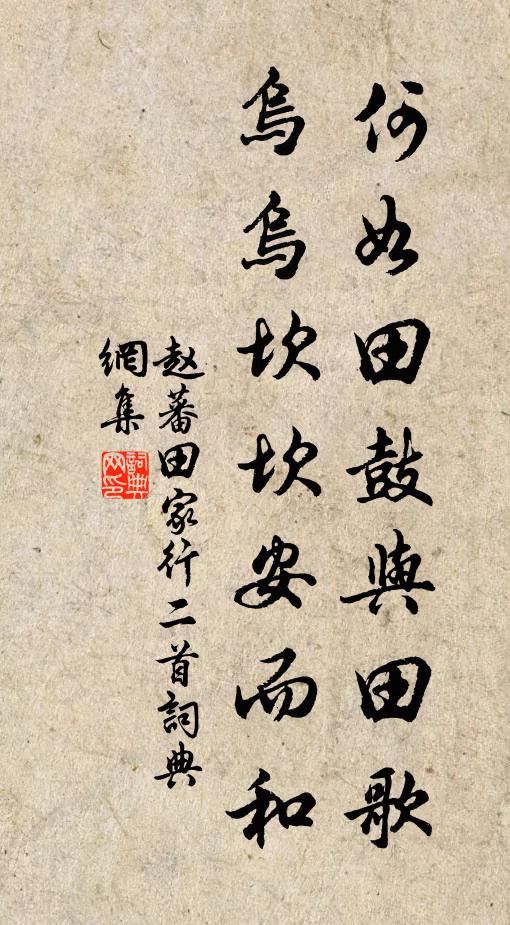 何如田鼓與田歌
烏烏坎坎安而和
赵蕃田家行二首詞典
網集
詞典
网印